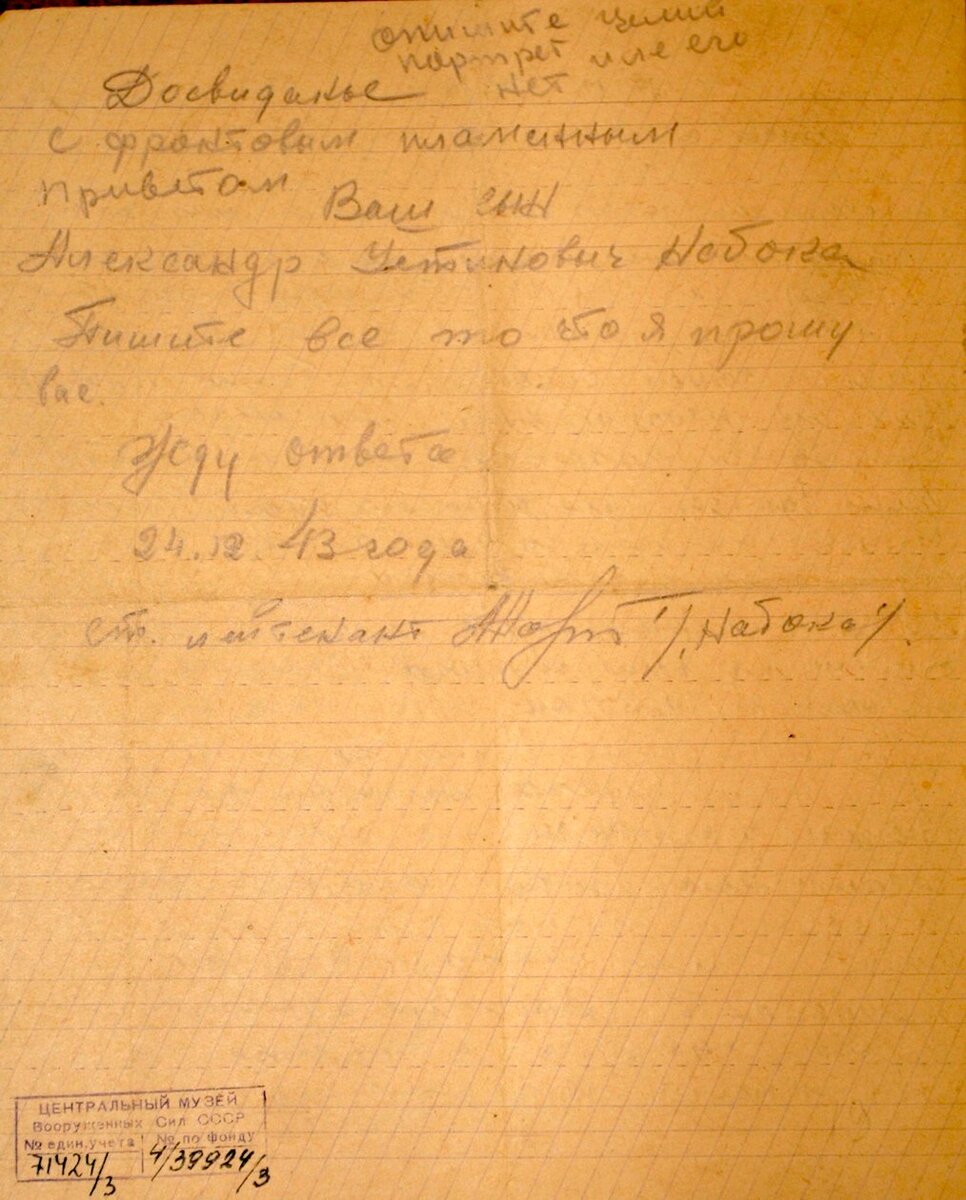 опишите целий
портрет иле его
нет
Досвиданье
с фронтовым пламенным
приветом
Ваш сын
Александр Устинович Набока
Пишите все то что я прошу
вас.
Жду ответа
24.12 43 года
ст. лейтенант "/Набока"/.
ЦЕНТРАЛЬНЫЙ МУЗЕЙ
Вооруженных Сил СССР
№ един.учета № по фонду
71424/3 4/39924/3